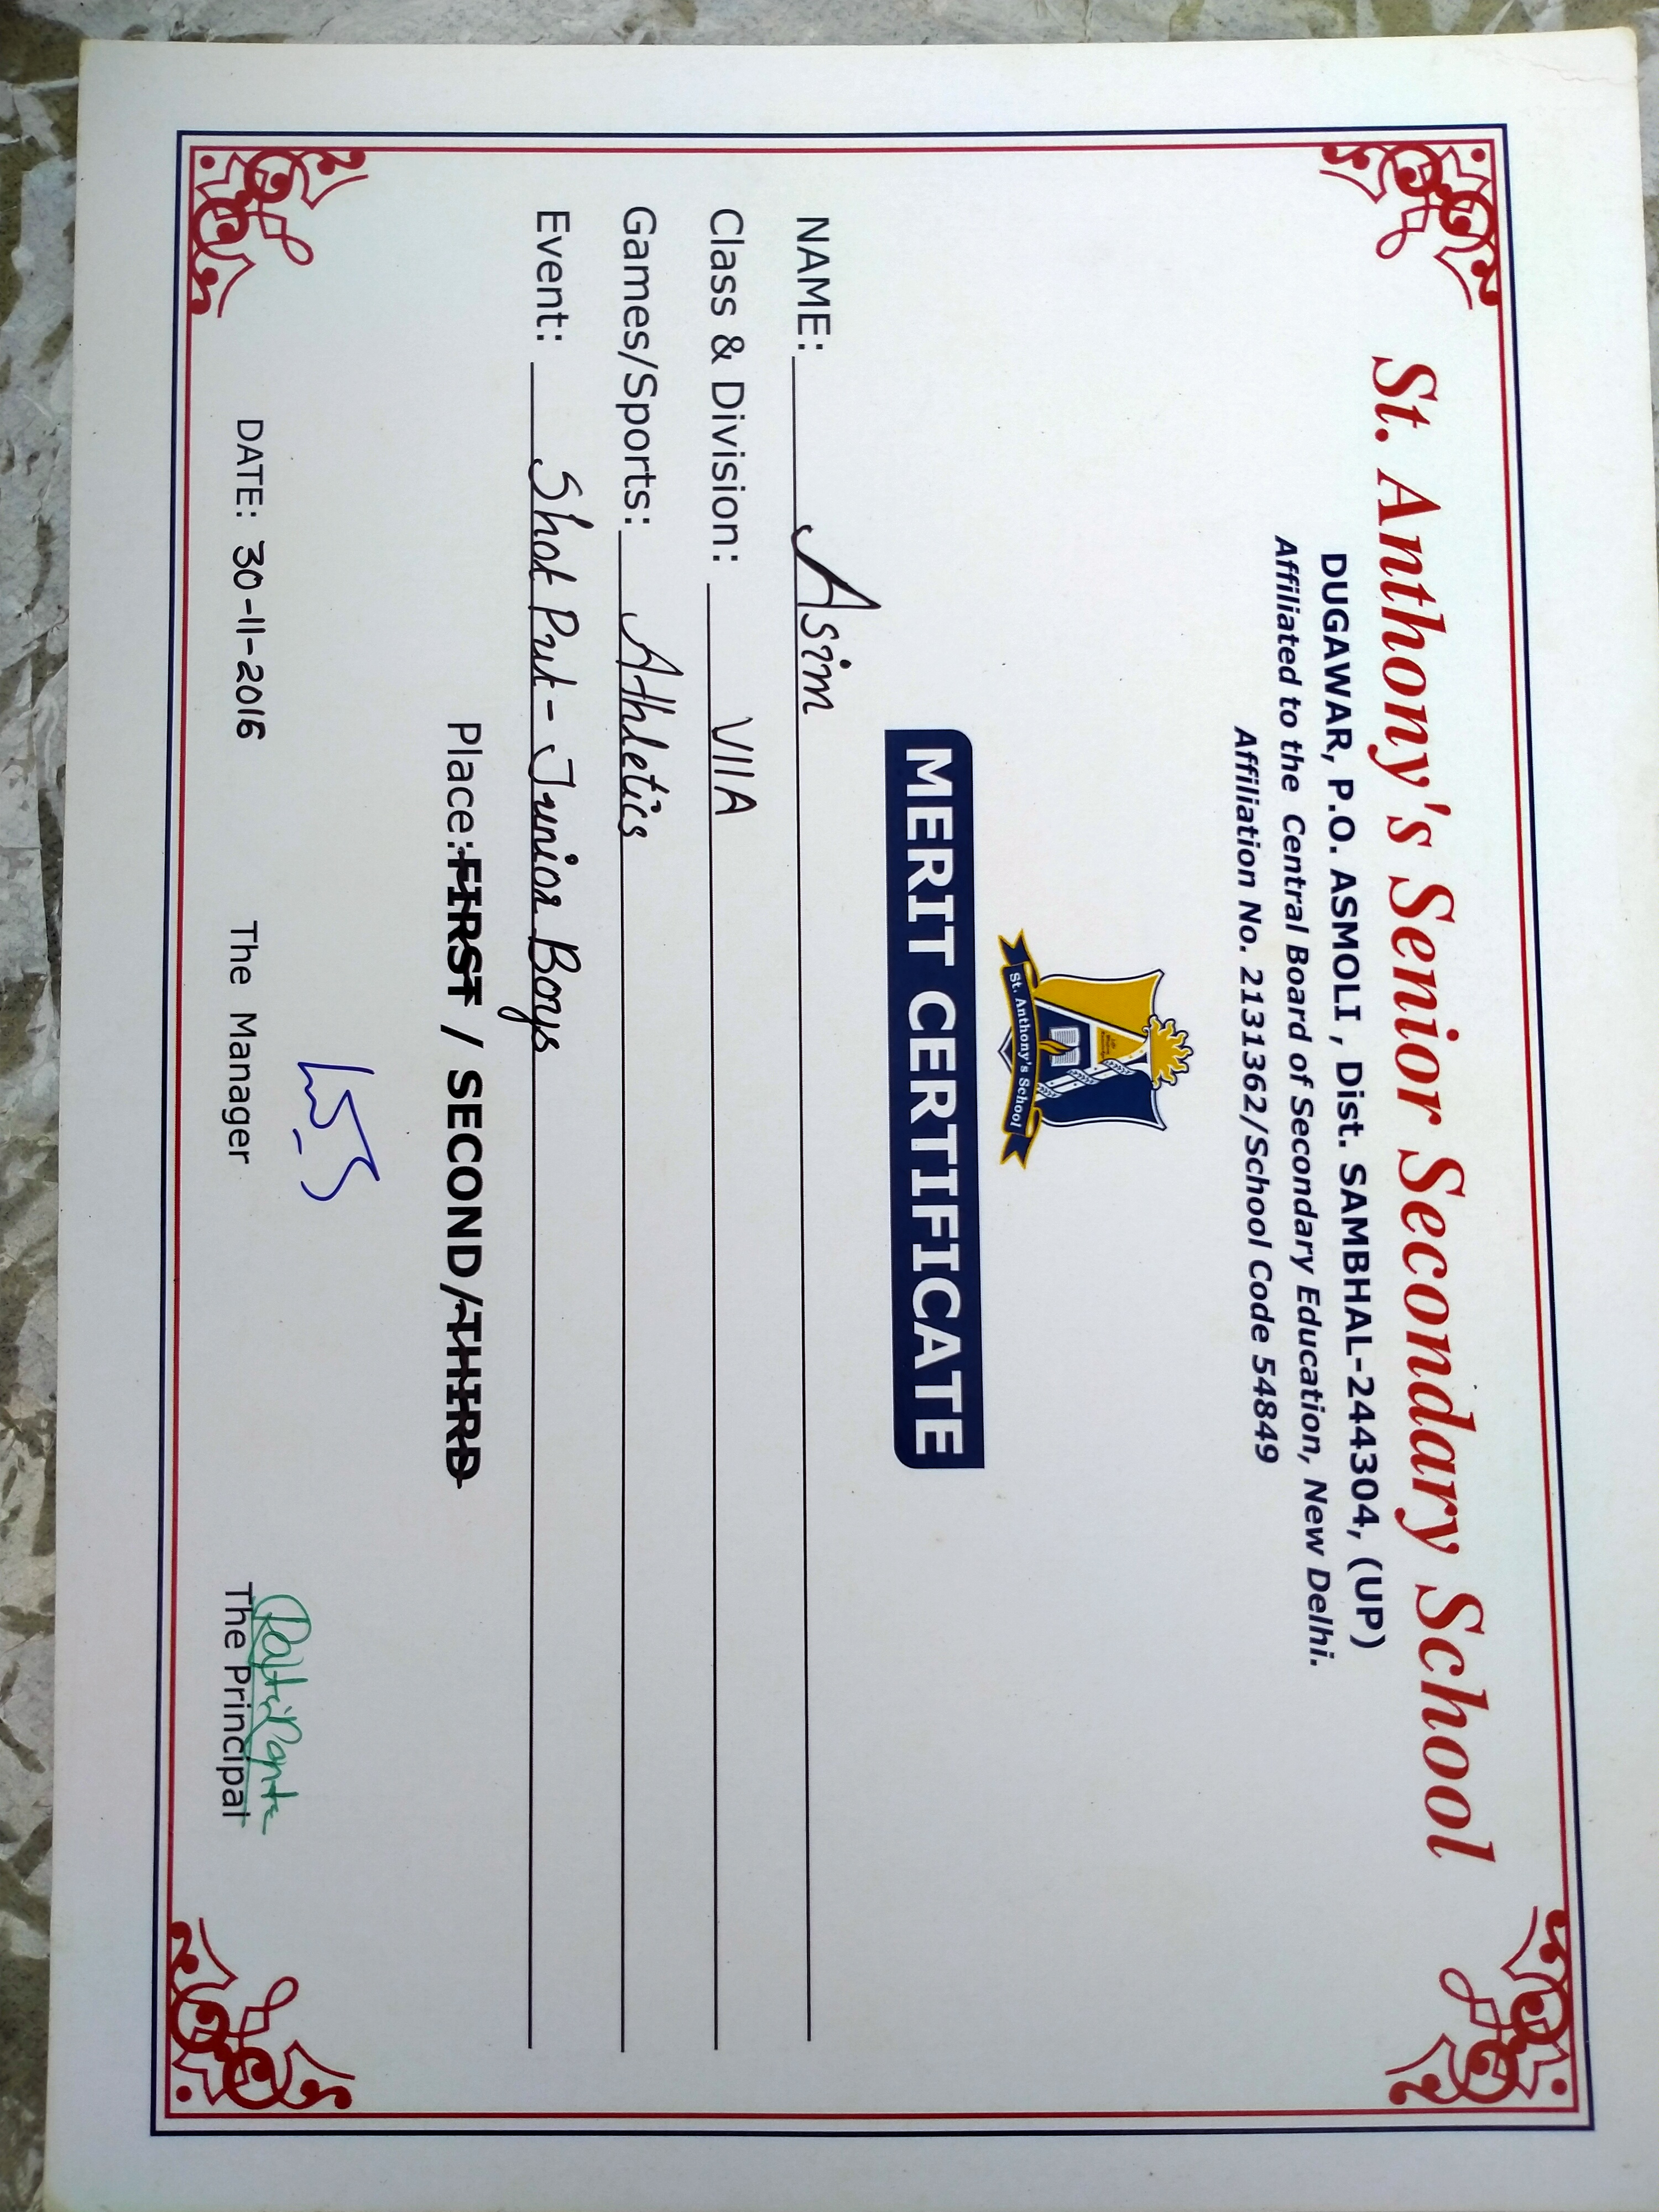 St. Anthony's Senior Secondary School
DUGAWAR, P.O. ASMOLI , Dist. SAMBHAL-244304, (UP)
Affiliated to the Central Board of Secondary Education, New Delhi.
Affiliation No. 2131362/School Code 54849
St. Anthony's School
MERIT CERTIFICATE
NAME: Asim
Class & Division: VIIA
Games/Sports: Athletics
Event: Shot Put - Junior Boys
Place: FIRST / SECOND/THIRD
DATE: 30-11-2016
The Manager
The Principal